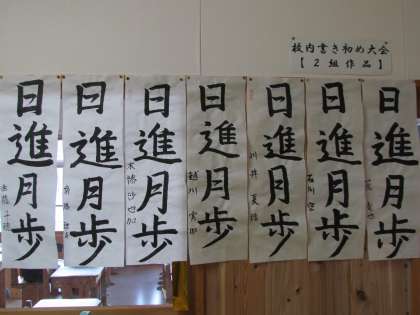 校内書き初め大会
【2組作品】
日進月歩
日進月歩
日進月歩
日進月歩
日進月歩
日進月歩
日進月歩